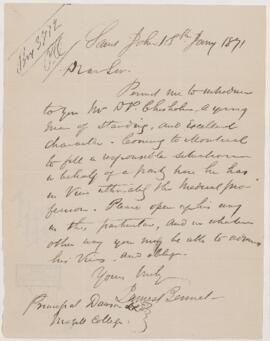 Saint John 18th Jany 1871
Dear Sir.
Permit me to introduce
to you Mr D. P. Chisholm. A young
man of Standing, and Excellent
Character. Coming to Montreal
to fill a responsible situation
in behalf of a party here. he has
in View attending the Medical pro-
fession. Please open up his way
in this particular, and in whatever
other way you may be able to advance
his Views. and oblige.
Yours truly
Bennet
Principal Dawson
McGill College.